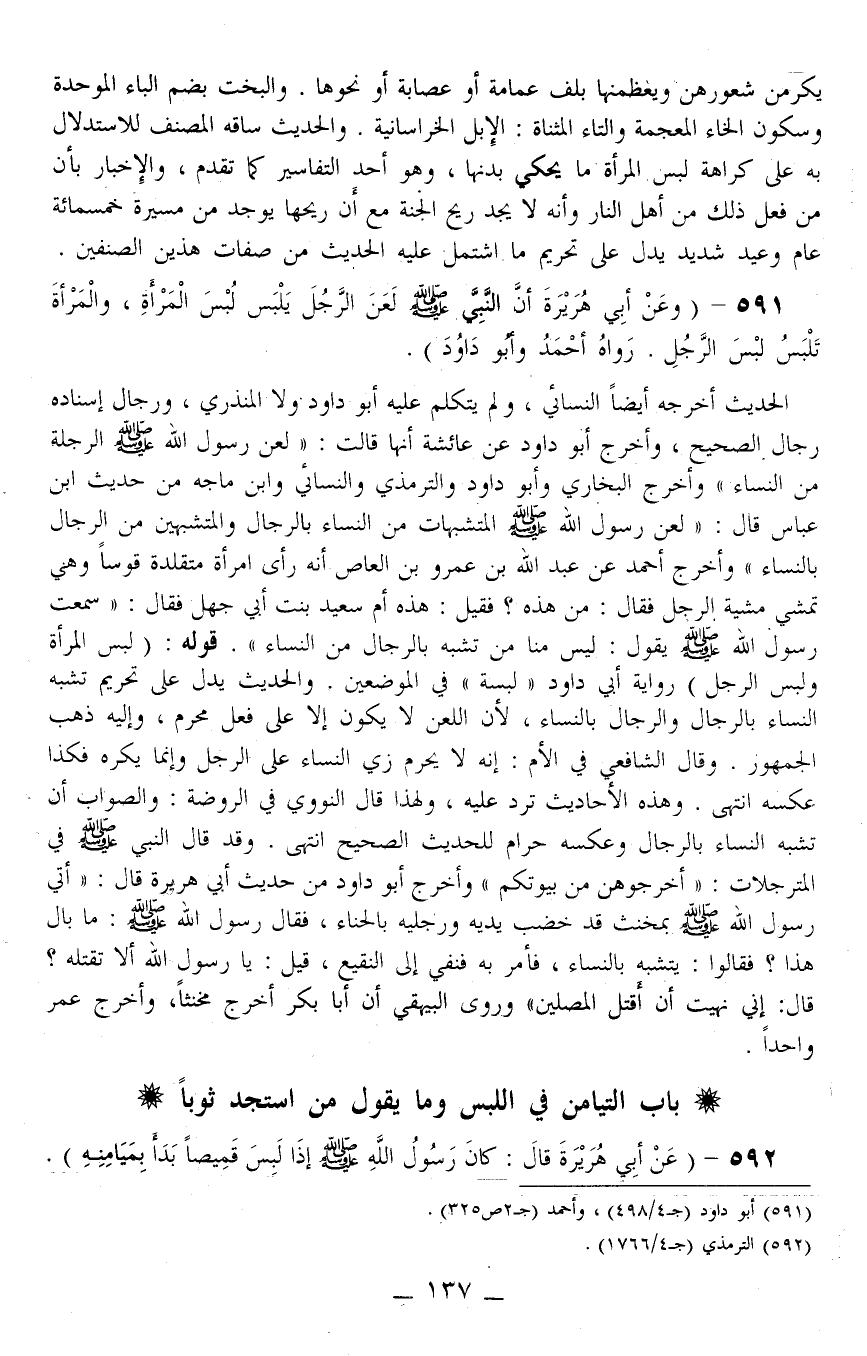 يكرمن شعورهن ويعظمنها بلف عمامة أو عصابة أو نحوها . والبخت بضم الباء الموحدة
وسكون الخاء المعجمة والتاء المثناة : الإبل الخراسانية . والحديث ساقه المصنف للاستدلال
به على كراهة لبس المرأة ما يحكي بدنها ، وهو أحد التفاسير كما تقدم ، والإخبار بأن
من فعل ذلك من أهل النار وأنه لا يجد ريح الجنة مع أن ريحها يوجد من مسيرة خمسمائة
عام وعيد شديد يدل على تحريم ما اشتمل عليه الحديث من صفات هذين الصنفين .
٥٩١ – ( وعَنْ أبِي هُرَيْرَةَ أنَّ النَّبِيَّ ﷺ لَعَنَ الرَّجُلَ يَلْبَس لُبْسَ الْمَرْأَةِ ، والْمَرْأةَ
تَلْبَسُ لبْسَ الرَّجُلِ . رَواهُ أحْمَدُ وأَبُو دَاوُدَ ) .
الحديث أخرجه أيضاً النسائي ، ولم يتكلم عليه أبو داود ولا المنذري ، ورجال إسناده
رجال الصحيح ، وأخرج أبو داود عن عائشة أنها قالت : « لعن رسول الله ﷺ الرجلة
من النساء » وأخرج البخاري وأبو داود والترمذي والنسائي وابن ماجه من حديث ابن
عباس قال : « لعن رسول الله ﷺ المتشبهات من النساء بالرجال والمتشبهين من الرجال
بالنساء » وأخرج أحمد عن عبد الله بن عمرو بن العاص أنه رأى امرأة متقلدة قوساً وهي
تمشي مشية الرجل فقال : من هذه ؟ فقيل : هذه أم سعيد بنت أبي جهل فقال : « سمعت
رسول الله ﷺ يقول : ليس منا من تشبه بالرجال من النساء » . قوله : ( لبس المرأة
ولبس الرجل ) رواية أبي داود « لبسة » في الموضعين . والحديث يدل على تحريم تشبه
النساء بالرجال والرجال بالنساء ، لأن اللعن لا يكون إلا على فعل محرم ، وإليه ذهب
الجمهور . وقال الشافعي في الأم : إنه لا يحرم زي النساء على الرجل وإنما يكره فكذا
عكسه انتهى . وهذه الأحاديث ترد عليه ، ولهذا قال النووي في الروضة : والصواب أن
تشبه النساء بالرجال وعكسه حرام للحديث الصحيح انتهى . وقد قال النبي ﷺ في
المترجلات : « أخرجوهن من بيوتكم » وأخرج أبو داود من حديث أبي هريرة قال : « أتي
رسول الله ﷺ بمخنث قد خضب يديه ورجليه بالحناء ، فقال رسول الله ﷺ : ما بال
هذا ؟ فقالوا : يتشبه بالنساء ، فأمر به فنفي إلى النقيع ، قيل : يا رسول الله ألا تقتله ؟
قال: إني نهيت أن أقتل المصلين» وروى البيهقي أن أبا بكر أخرج مخنثاً، وأخرج عمر
واحداً .
باب التيامن في اللبس وما يقول من استجد ثوباً
٥٩٢ – ( عَنْ أبِي هُرَيْرَةَ قالَ : كانَ رَسُولُ اللَّهِ ﷺ إذَا لَبِسَ قَمِيصاً بَدَأَ بِمَيَامِنِهِ ) .
(٥٩١) أبو داود (جـ٤/٤٩٨) ، وأحمد (جـ٢ص٣٢٥) .
(٥٩٢) الترمذي (جـ٤/١٧٦٦) .
– ١٣٧ –